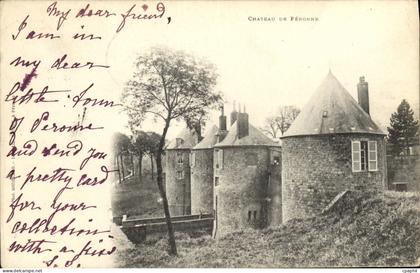 CHATEAU DE PÉRONNE
My dear friend,
I am in
my dear
little town
of Peronne
and send you
a pretty card
for your
collection
with a